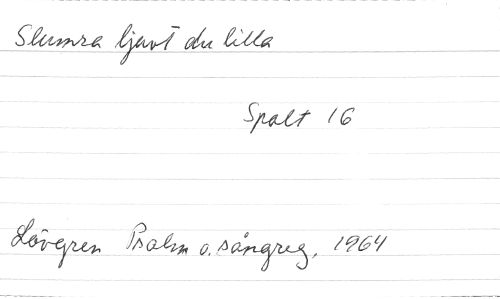 Slumra ljuvt du lilla
Spalt 16
Lövgren Psalm o. sångreg, 1964